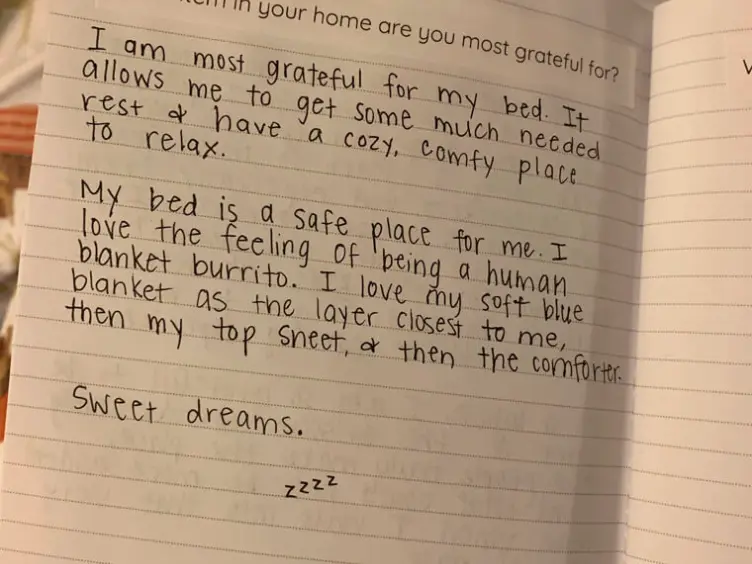 in your home are you most grateful for?
I am most grateful for my bed. It
allows me to get some much needed
rest & have a cozy, comfy place
to relax.
My bed is a safe place for me. I
love the feeling of being a human
blanket burrito. I love my soft blue
blanket as the layer closest to me,
then my top sheet, & then the comforter.
Sweet dreams.
zzzz